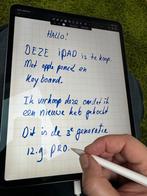 Hallo!
DEZE iPAD is te koop
Met apple pencil en
Keyboard.
Ik verkoop deze omdat ik
een nieuwe heb gekocht
Dit is de 3e generatie
12.9 PRO.